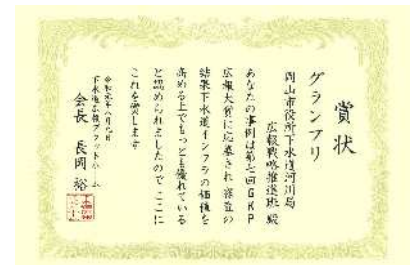 賞状
グランプリ
岡山市役所下水道河川局
広報戦略推進班 殿
あなたの事例は第七回GKP
広報大賞に応募され審査の
結果下水道インフラの価値を
高める上でもっとも優れている
と認められましたのでここに
これを賞します
令和元年八月九日
下水道広報プラットホーム
会長 長岡 裕